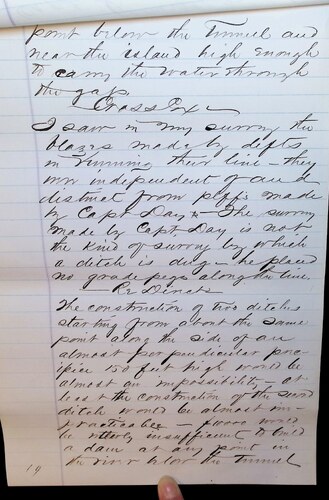 point below the Tunnel and
near the island high enough
to carry the water through
the gap.
Cross Ex
I saw in my survey the
blazes made by defts
in running their line - they
were independent of and
distinct from piffs made
by Capt Day - The survey
made by Capt Day is not
the kind of survey by which
a ditch is dug - he placed
no grade pegs along the line
Re Direct
The construction of two ditches
starting from about the same
point along the side of an
almost perpendicular precipice
150 feet high would be
almost an impossibility - at
least the construction of the second
ditch would be almost im-
practicable - would
be utterly insufficient to build
a dam at any point in
the river below the Tunnel
19